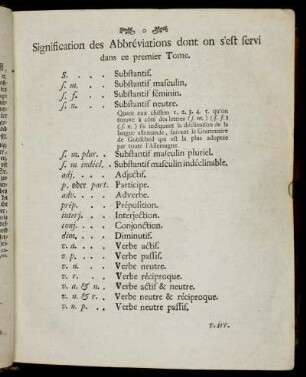 o
Signification des Abbréviations dont on s'est servi
dans ce premier Tome.
S. . . . Substantif.
s. m. . . . Substantif masculin.
s. f. . . . Substantif féminin.
s. n. . . . Substantif neutre.
Quant aux chiffres 1. 2. 3. 4. 5. qu'on
trouve à côté des lettres (s. m.) (s. f.)
(s. n.) ils indiquent la déclinaison de la
langue allemande, suivant la Grammaire
de Gottsched qui est la plus adoptée
par toute l'Allemagne.
s. m. plur. . Substantif masculin pluriel.
s. m. indécl. . Substantif masculin indéclinable.
adj. . . . Adjectif.
p. oder part. Participe.
adv. . . . Adverbe.
prép. . . . Préposition.
interj. . . . Interjection.
conj. . . . Conjonction.
dim. . . . Diminutif.
v. a. . . . Verbe actif.
v. p. . . . Verbe passif.
v. n. . . . Verbe neutre.
v. r. . . . Verbe réciproque.
v. a. & n. . Verbe actif & neutre.
v. n. & r. . Verbe neutre & réciproque.
v. n. p. . . Verbe neutre passif.
v. irr.